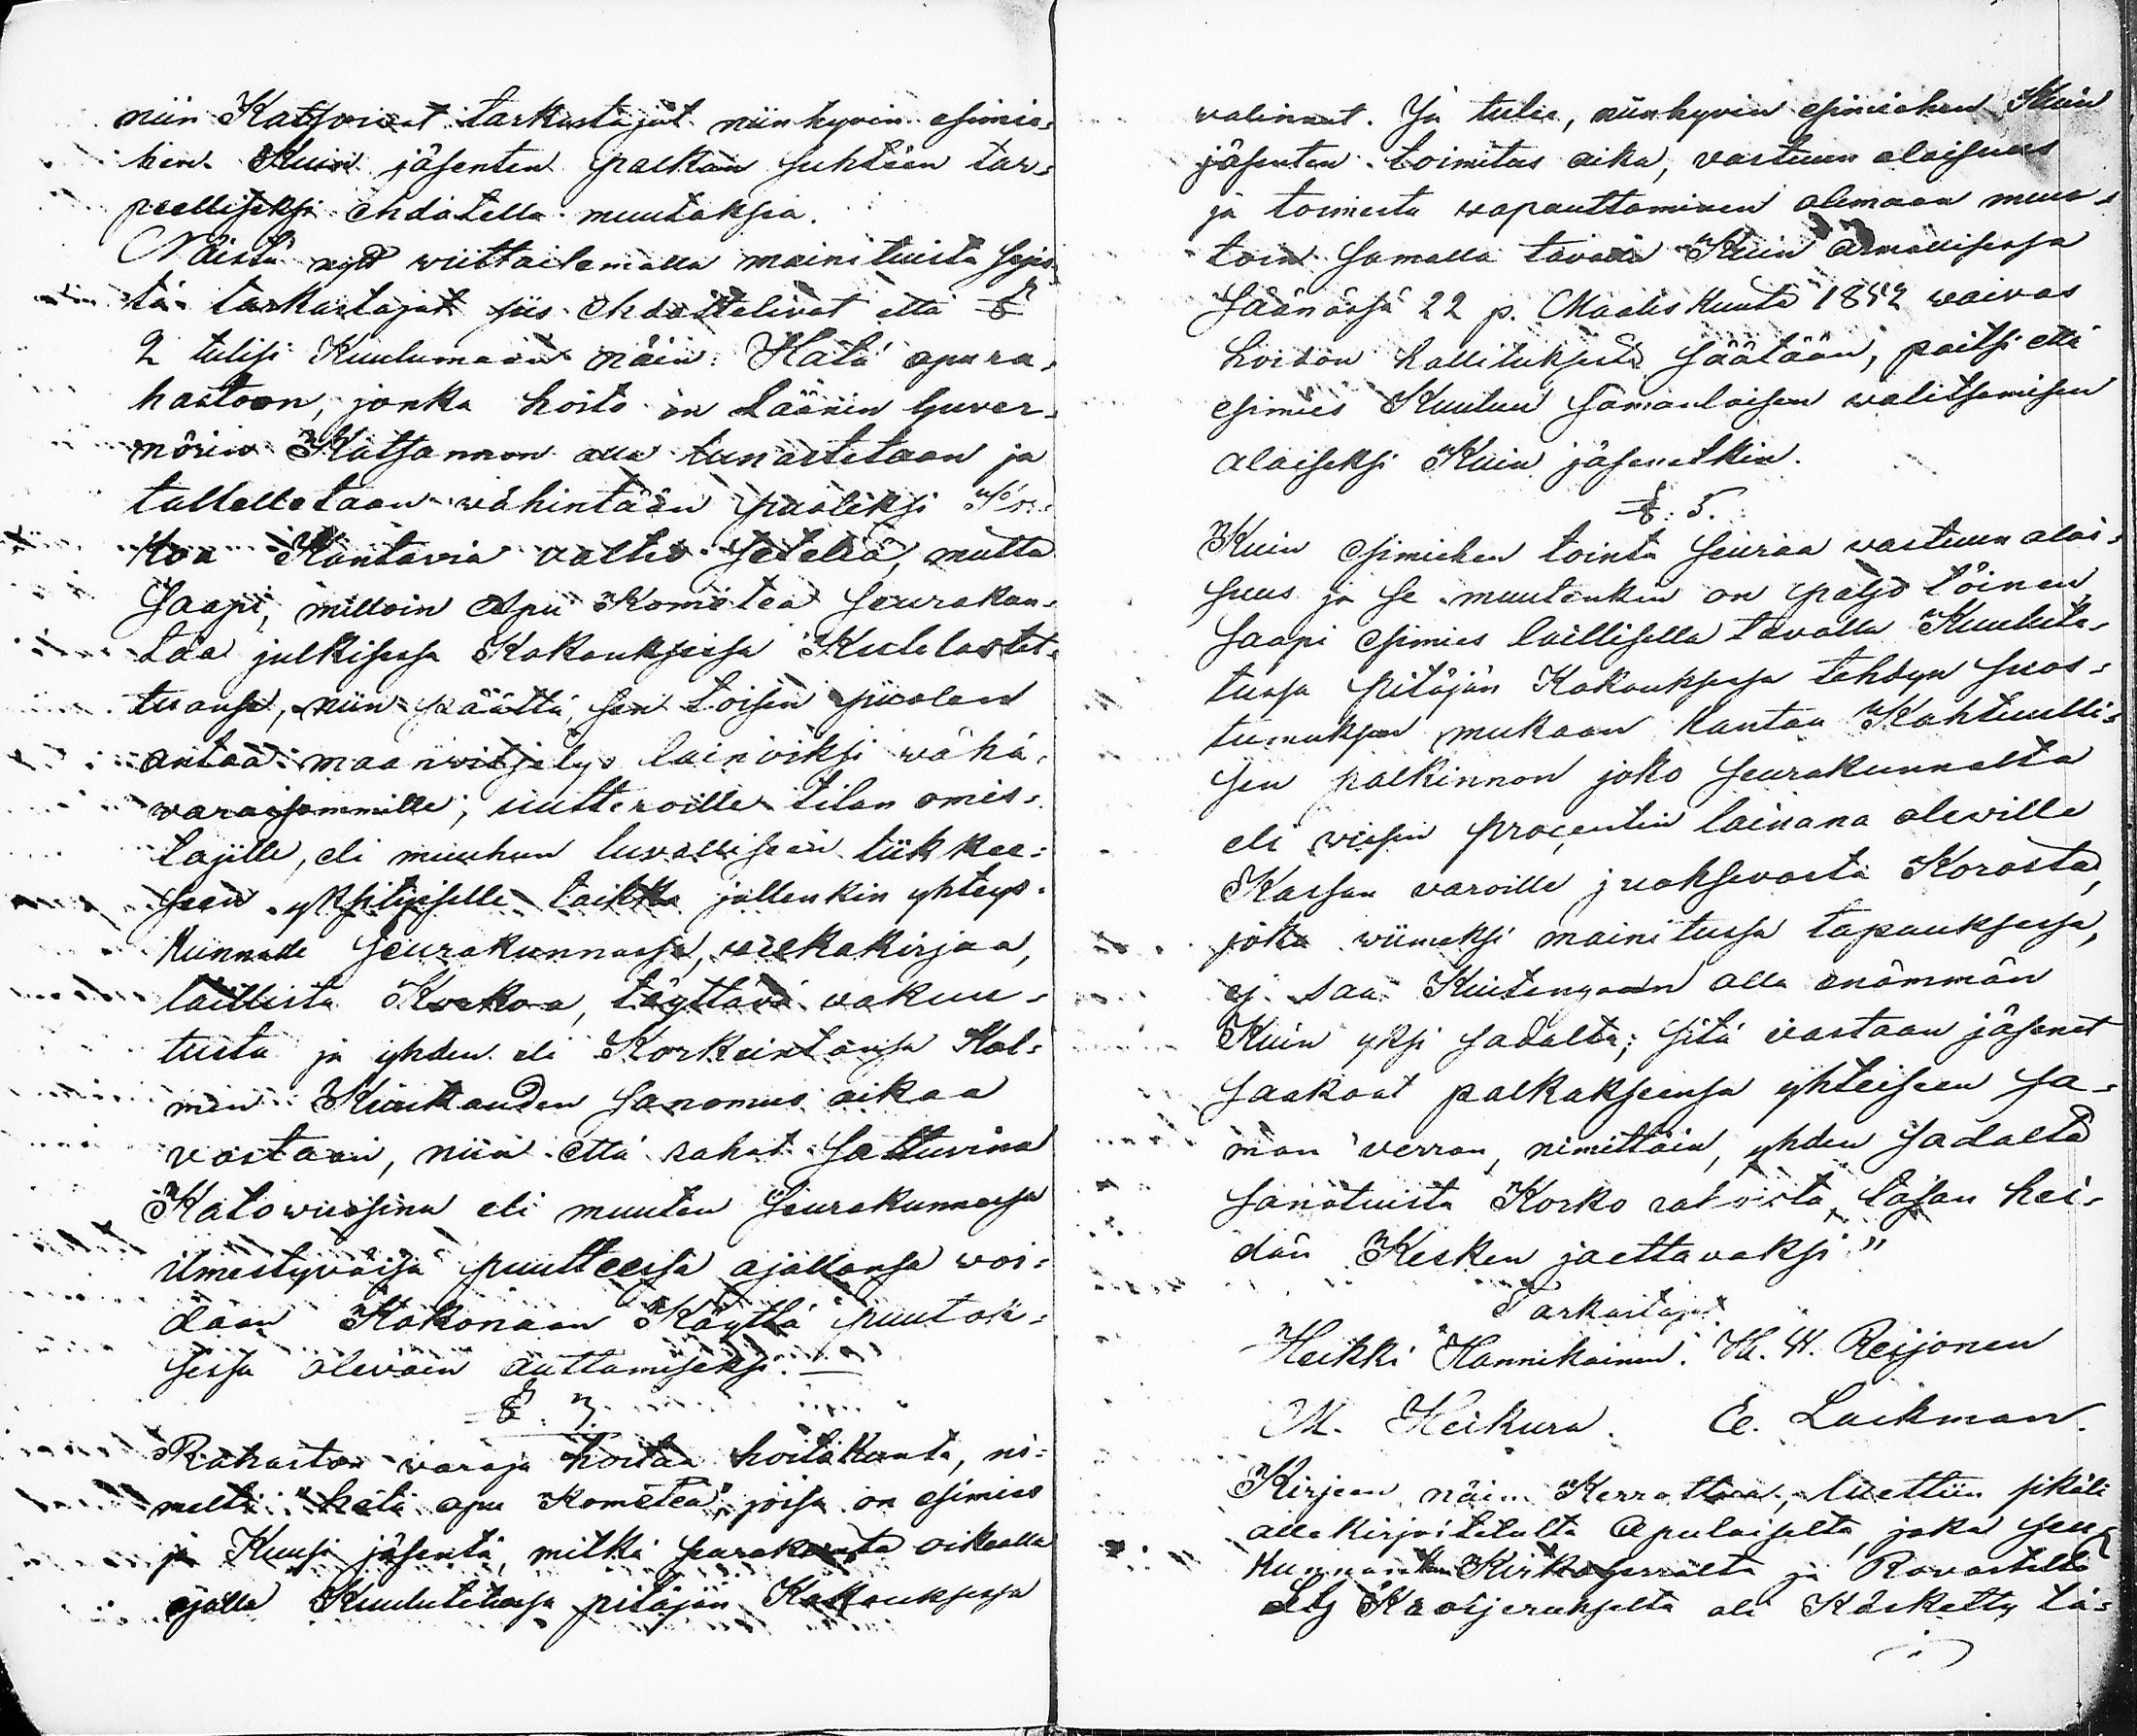 niin Katsoivat tarkastajat niinhyvin esimie=
hen Kuin jäsenten palkan suhteen tar=
peelliseksi ehdotella muutoksia.
Näistä nyt wiittailemalla mainituista syis=
tä tarkastajat siis ehdottelivat että §
2 tulisi Kuulumaan näin: Hätä apu ra=
hastoon, jonka hoito on Läänin Guver=
nörin Katsannon alla lunastetaan ja
talletetaan vähintään puoleksi Kor=
koa Kantavia valtio seteliä, mutta
Saapi, milloin Apu Komitea seurakun=
taa julkisessa Kokouksessa Kuulustet=
tuansa, niin päättä, sen toisen puolen
antaa maanviljelys lainoiksi vähä=
varaisemmille, uutteroille tilan omis=
tajille, eli muuhun luvalliseen liikkee=
seen yksityiselle taikka jollenkin yhteys=
kunnalle seurakunnassa, velkakirjaa,
laillista Korkoa, täyttävä vakuu=
tusta ja yhden eli Korkeintansa Kol=
men Kuukauden sanomus aikaa
vastaan, niin että rahat sattuvina
Katovuosina eli muuten seurakunnassa
ilmestyväisä puutteessa ajallansa voi=
daan Kokonaan Käyttä puutok=
sessa olevain auttamiseksi. —
§. 3.
Rahaston varoja hoitaa hoitokunta, ni=
meltä "hätä apu Komitea", joisa on esimies
ja Kuusi jäsentä, mitkä seurakunta oikealla
ajalla Kuulutetussa pitäjän Kokouksessa
valinnut. Ja tulee, niinhyvin esimiehen Kuin
jäsenten toimitus aika, vastuun alaisuus
ja toimesta vapauttaminen olemaan muu=
toin samalla tavalla Kuin Armollisessa
Säännössä 22 p. Maalis Kuuta 1852 waivas
hoidon hallituksesta säätään, paitsi että
esimies Kuuluu samanlaisen valitsemisen
alaiseksi Kuin jäsenetkin.
§. 5.
Kuin esimiehen tointa seuraa vastuun alai=
suus ja se muutenkin on paljo töinen,
saapi esimies laillisella tavalla Kuulute=
tussa pitäjän Kokouksessa tehdyn suos=
tumuksen mukaan kantaa Kohtuulli=
sen palkinnon joko seurakunnalta
eli viisin procentin lainana oleville
Kassan varoille juoksevasta Korosta,
joka viimeksi mainitussa tapauksessa,
ej saa Kuitengaan olla enämmän
Kuin yksi sadalta; sitä vastaan jäsenet
saakoot palkakseensa yhteiseen sa=
man verran, nimittäin, yhden sadalta
sanotuista Korko rahoista, tasan hei=
dän Kesken jaettavaksi"
Tarkastajat.
Heikki Hannikainen. K. W. Reijonen
M. Heikura. E. Lackman.
Kirjeen näin Kerrottua, luettiin sikäli
allekirjoitetulta Apulaiselta, joka seura
Kunnan Kirkoherralta ja Rovastilta
Kroijerukselta oli Käsketty tä=